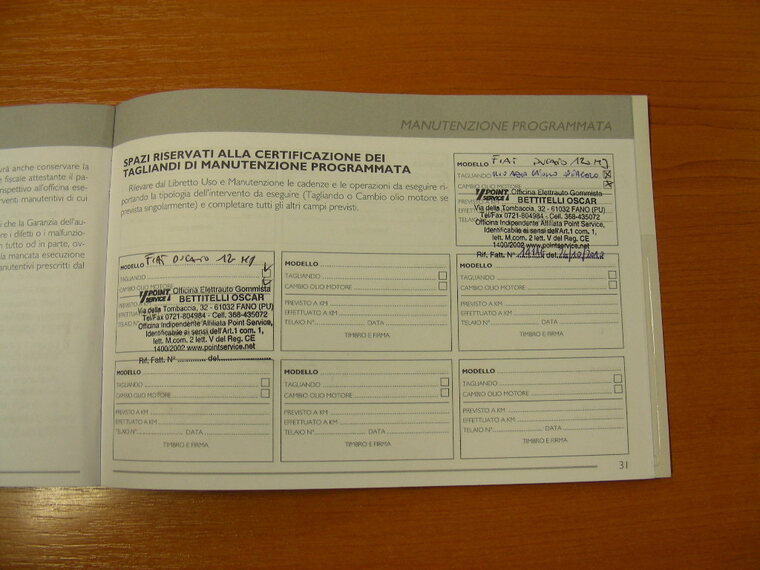 MANUTENZIONE PROGRAMMATA
urà anche conservare la
e fiscale attestante il pa-
spettivo all'officina ese-
venti manutentivi di cui
i che la Garanzia dell'au-
re i difetti o i malfunzio-
n tutto od in parte, ov-
la mancata esecuzione
manutentivi prescritti dal
SPAZI RISERVATI ALLA CERTIFICAZIONE DEI
TAGLIANDI DI MANUTENZIONE PROGRAMMATA
Rilevare dal Libretto Uso e Manutenzione le cadenze e le operazioni da eseguire ri-
portando la tipologia dell'intervento da eseguire (Tagliando o Cambio olio motore se
prevista singolarmente) e completare tutti gli altri campi previsti.
MODELLO FIAT DUCATO 120 MJ
TAGLIANDO
POINT SERVICE Officina Elettrauto Gommista
BETTITELLI OSCAR
Via della Tombaccia, 32 - 61032 FANO (PU)
Tel/Fax 0721-804984 - Cell. 368-435072
Officina Indipendente Affiliata Point Service,
Identificabile ai sensi dell'Art.1 com. 1,
lett. M,com. 2 lett. V del Reg. CE
1400/2002 www.pointservice.net
Rif. Fatt. N° del
MODELLO FIAT DUCATO 120 MJ
TAGLIANDO
CAMBIO OLIO MOTORE
POINT SERVICE Officina Elettrauto Gommista
BETTITELLI OSCAR
Via della Tombaccia, 32 - 61032 FANO (PU)
Tel/Fax 0721-804984 - Cell. 368-435072
Officina Indipendente Affiliata Point Service,
Identificabile ai sensi dell'Art.1 com. 1,
lett. M,com. 2 lett. V del Reg. CE
1400/2002 www.pointservice.net
Rif. Fatt. N° del
MODELLO
TAGLIANDO
CAMBIO OLIO MOTORE
PREVISTO A KM
EFFETTUATO A KM
TELAIO N° DATA
TIMBRO E FIRMA
TAGLIANDO
CAMBIO OLIO MOTORE
PREVISTO A KM
EFFETTUATO A KM
TELAIO N° DATA
TIMBRO E FIRMA
MODELLO
TAGLIANDO
CAMBIO OLIO MOTORE
PREVISTO A KM
EFFETTUATO A KM
TELAIO N° DATA
TIMBRO E FIRMA
MODELLO
TAGLIANDO
CAMBIO OLIO MOTORE
PREVISTO A KM
EFFETTUATO A KM
TELAIO N° DATA
TIMBRO E FIRMA
MODELLO
TAGLIANDO
CAMBIO OLIO MOTORE
PREVISTO A KM
EFFETTUATO A KM
TELAIO N° DATA
TIMBRO E FIRMA
31